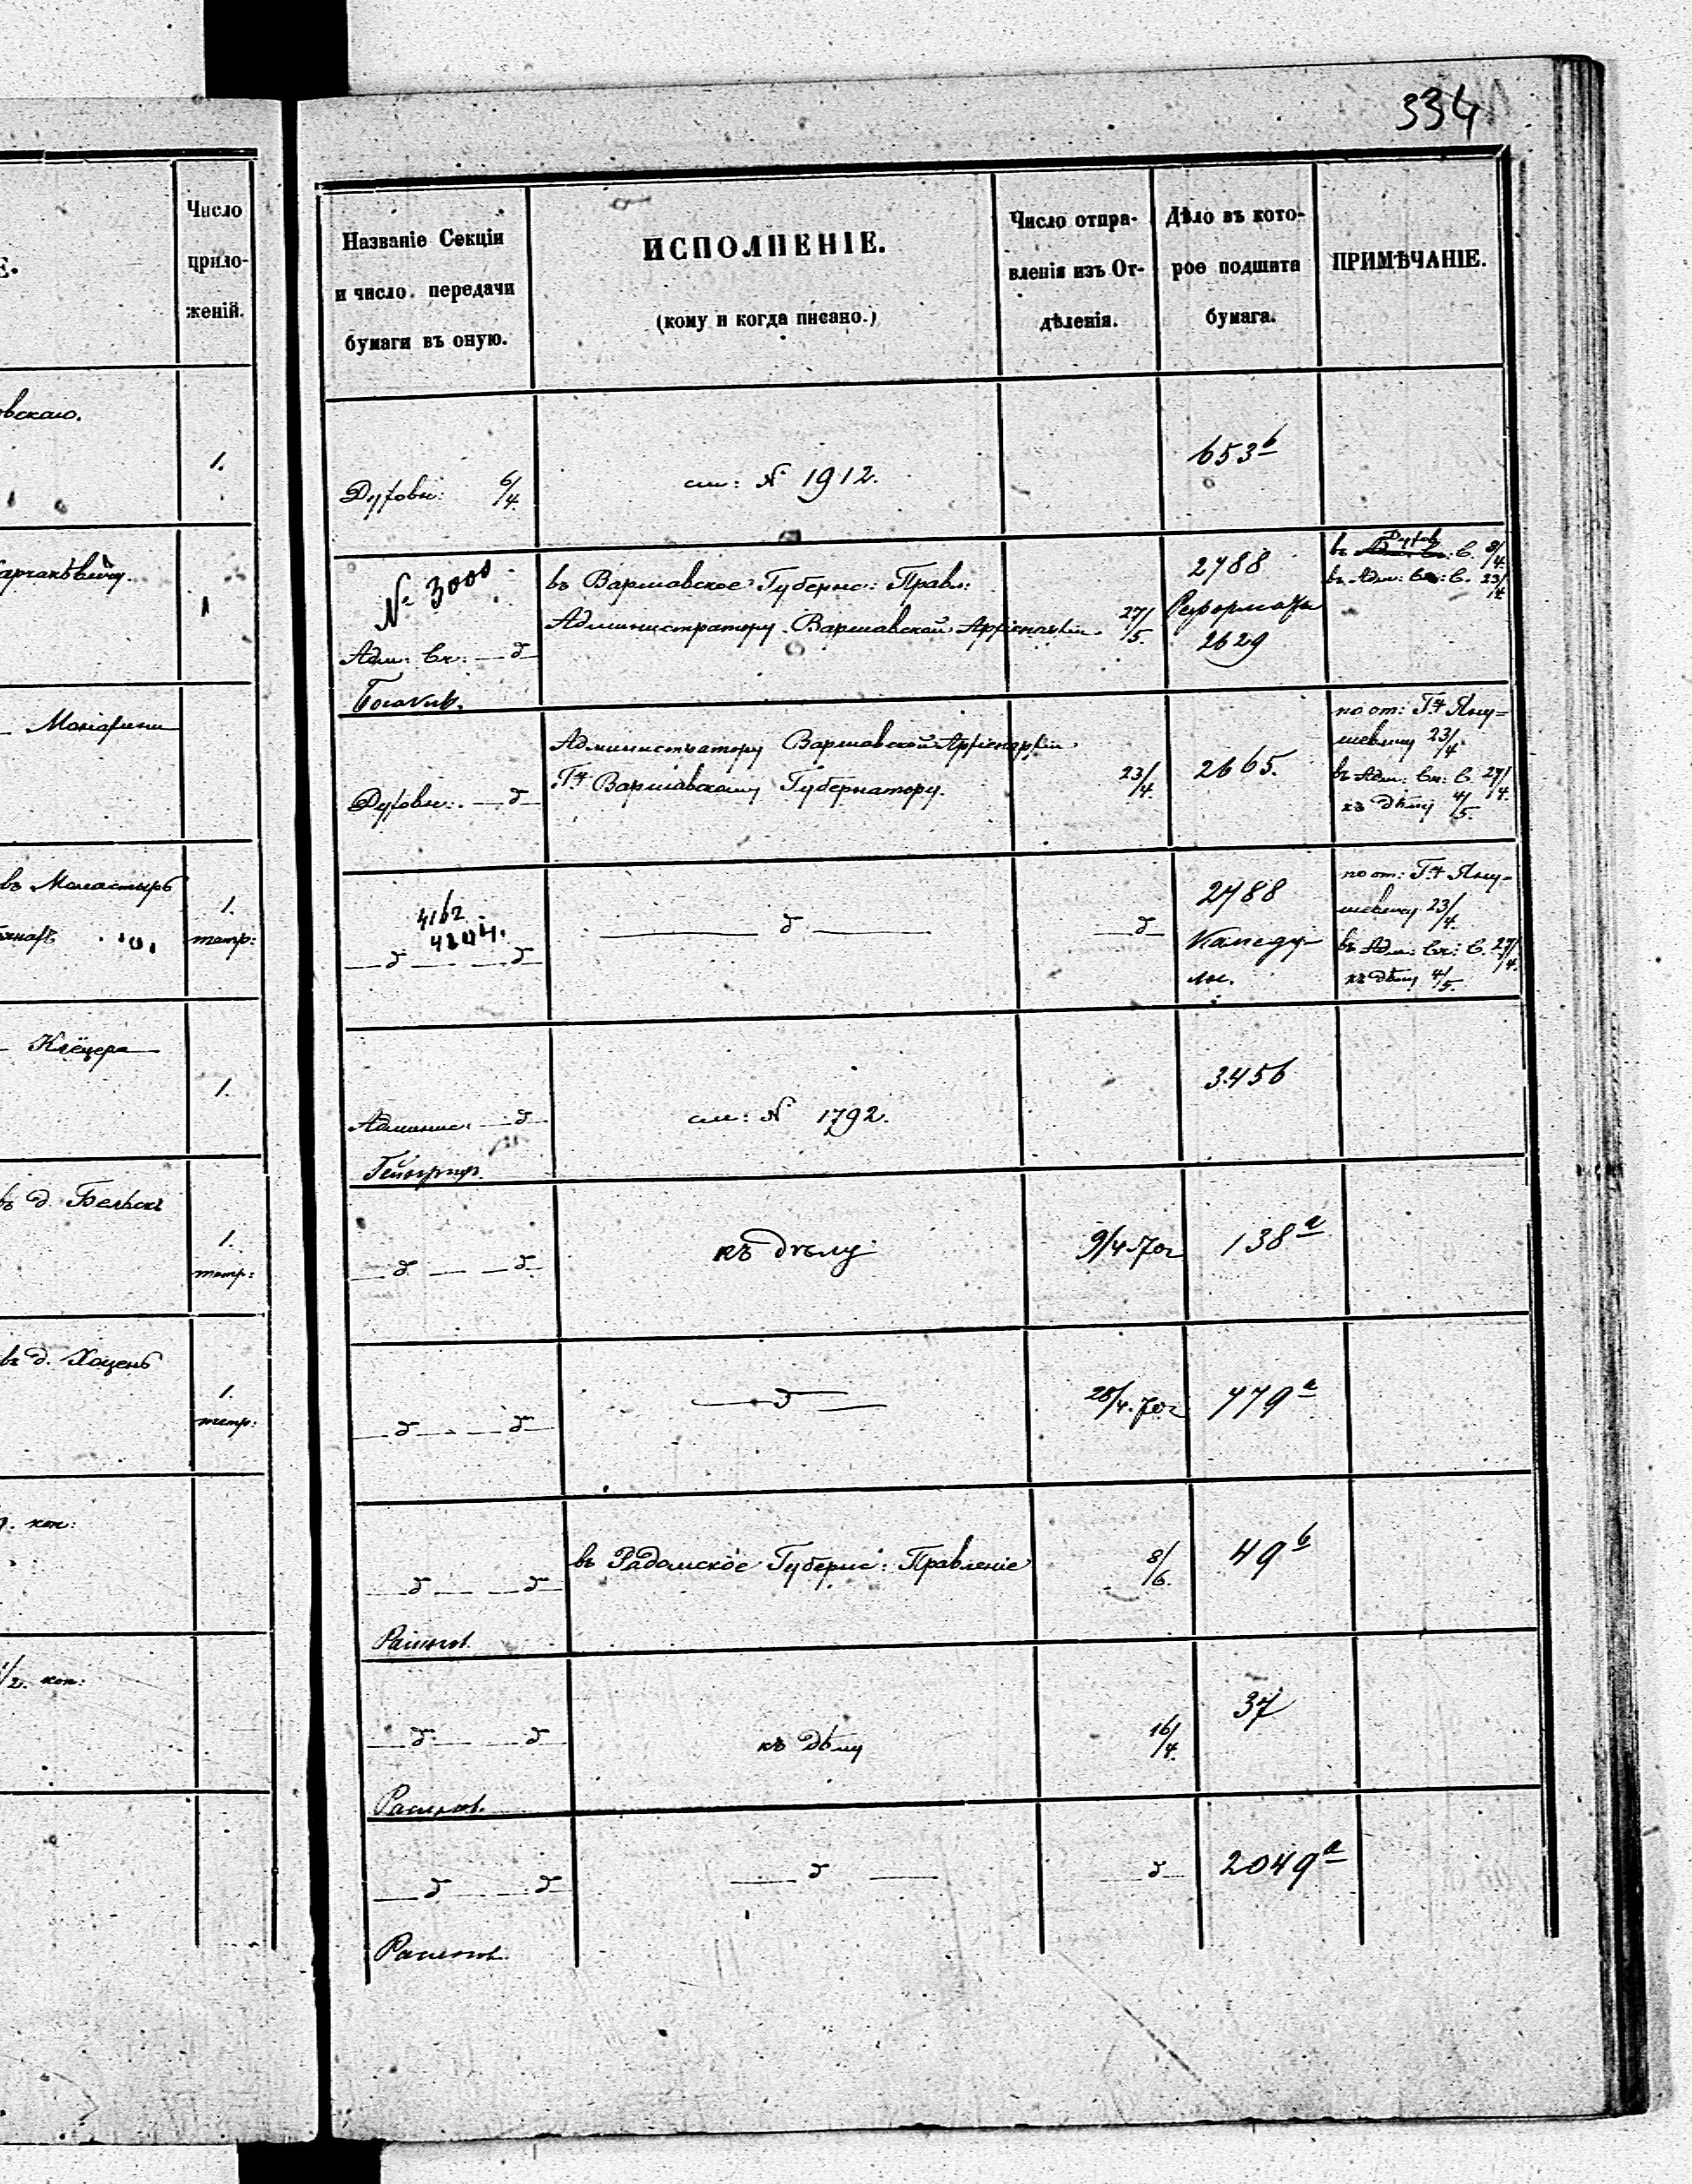 334
Е.
Число
прило-
женій.
1.
Монахини
въ Монастырѣ
1.
тетр:
Клёцера
1.
въ д. Бельскъ
1.
тетр:
въ д. Хоценъ
1.
тетр:
коп:
1/2. коп:
Названіе Секціи
и число передачи
бумаги въ оную.
ИСПОЛНЕНІЕ.
(кому и когда писано.)
Число отпра-
вленія изъ От-
дѣленія.
Дѣло въ кото-
рое подшита
бумага.
ПРИМѢЧАНІЕ.
Духовн: 6/4.
см: № 1912.
653 b
№ 3000
Адм: Ск: — д
въ Варшавское Губернс: Правл:
Администратору Варшавской Архіепархіи
27/5
2788
Реформаты
2629
въ Духов: С. 8/4
въ Адм: Ск: С. 23/4
Духовн: — д
Администратору Варшавской Архіепархіи
Г. Варшавскому Губернатору.
23/4.
2665.
по от: Г. Яну-
шевичу 23/4.
въ Адм: Ск: С. 27/4.
къ дѣлу 4/5.
4162
4204.
— д — — д
— д —
— д
2788
Камеду-
лы.
по от: Г. Яну-
шевичу 23/4.
въ Адм: Ск: С. 27/4.
къ дѣлу 4/5.
Админис: — д
см: № 1792.
3456
— д — — д
къ дѣлу
9/4 70г
138 a
— д — — д
— д —
25/4. 70г
779 a
— д — — д
въ Радомское Губернс: Правленіе
8/6.
49 b
— д — — д
къ дѣлу
16/4.
37
— д — — д
— д —
д
2049 a